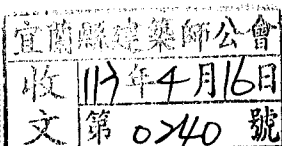 宜蘭縣建築師公會
收文 113年4月16日
第 0240 號